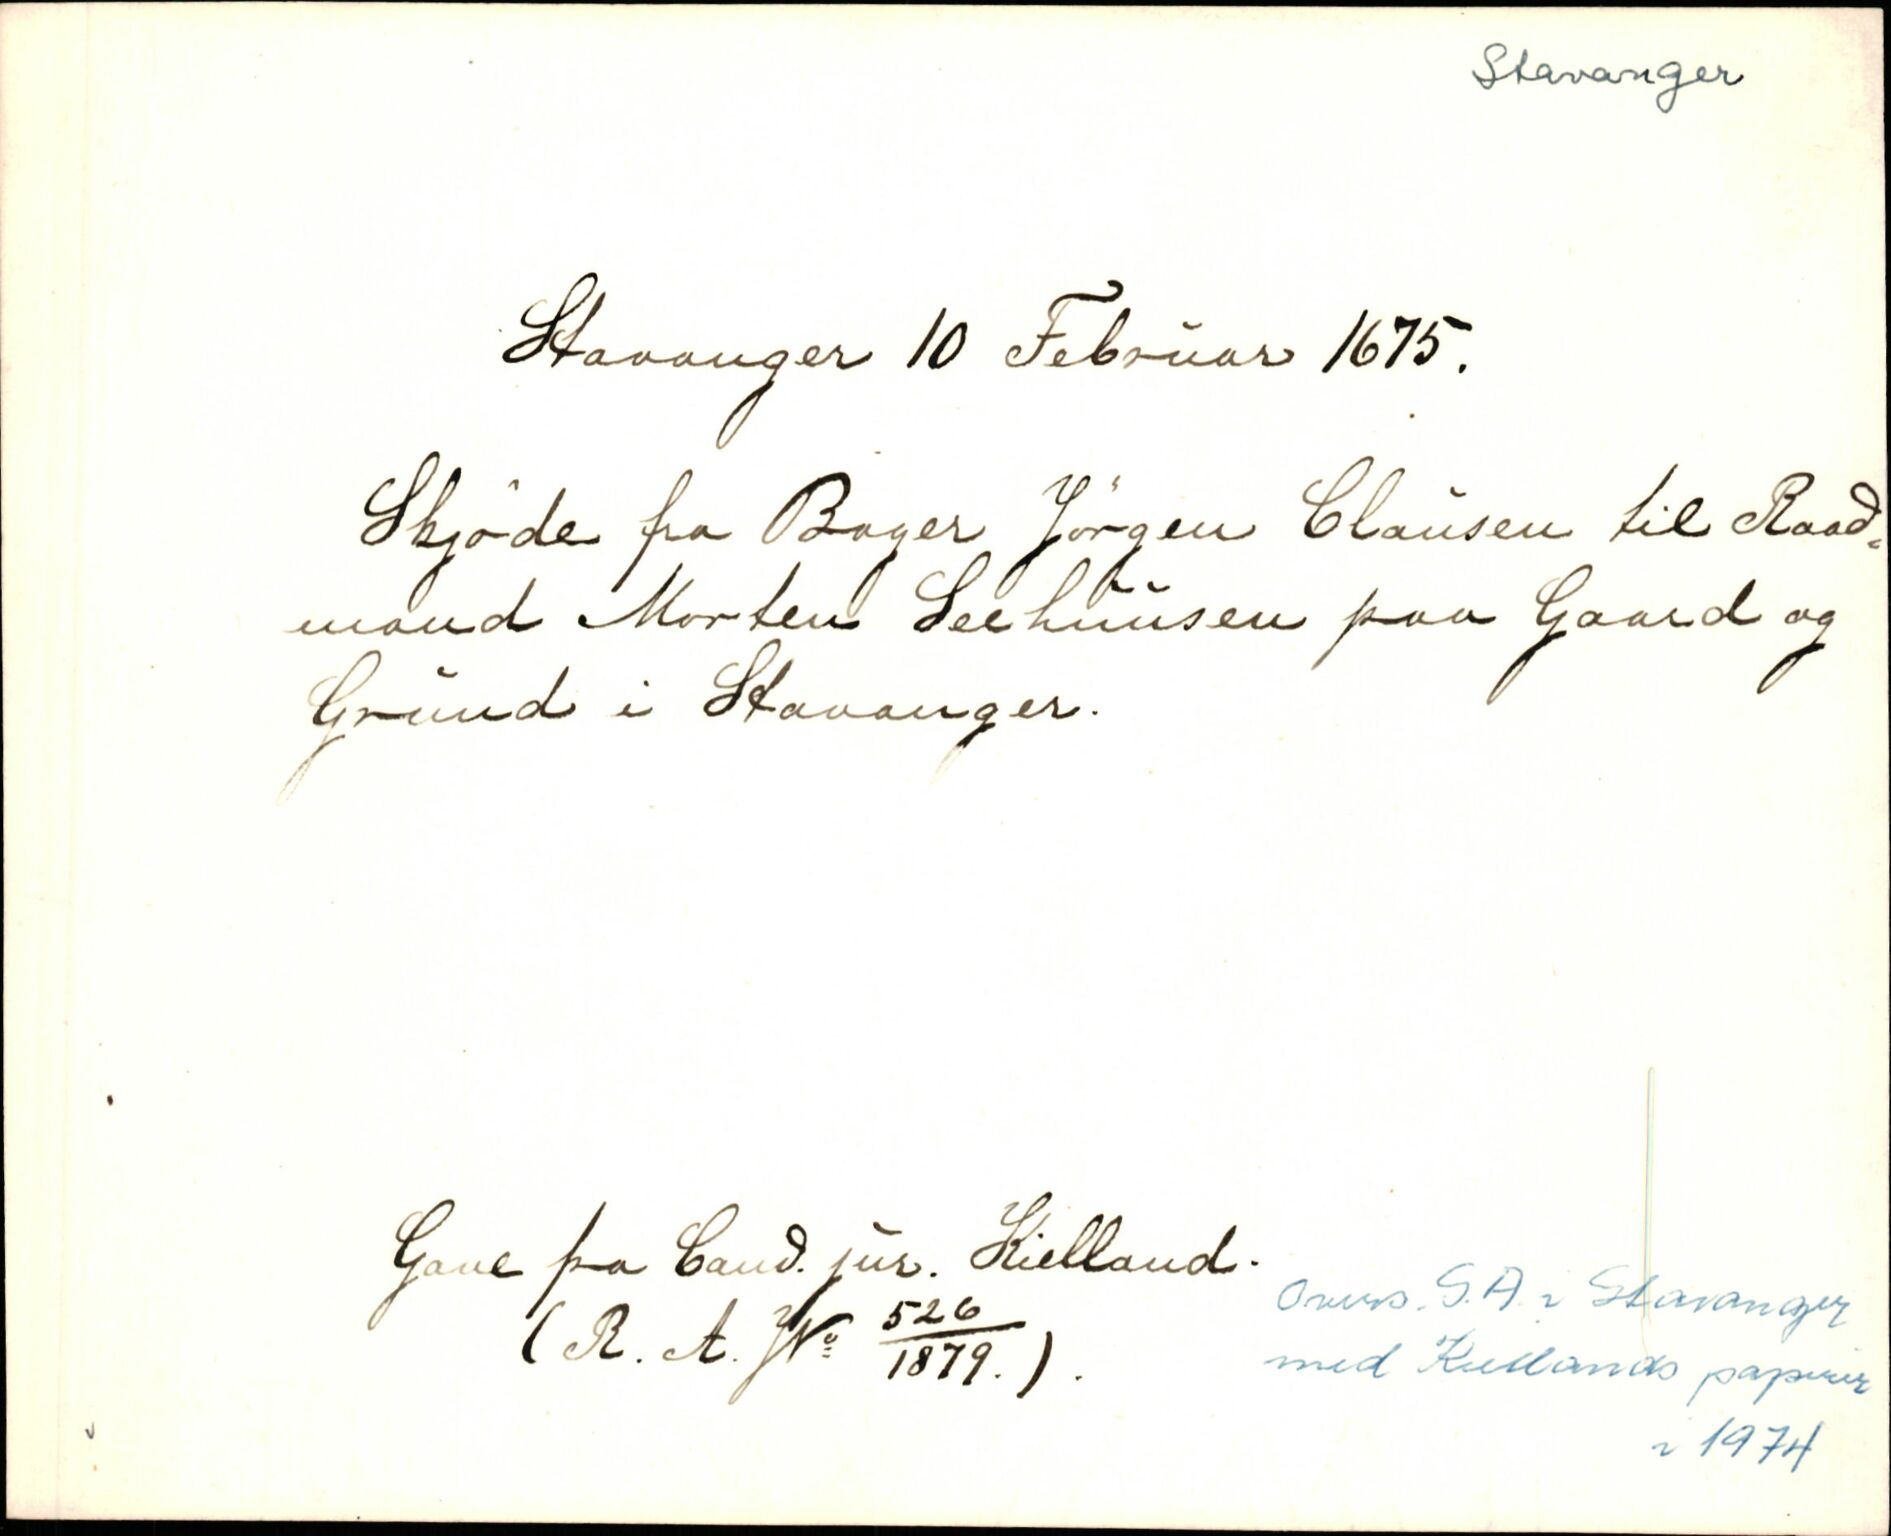 Stavanger
Stavanger 10 Februar 1675.
Skjöde fra Bager Jörgen Clausen til Raad=
mand Morten Seehuusen paa Gaard og
Grund i Stavanger.
Gave fra Cand. jur. Kielland.
(R. A. J№ 526/1879.).
Overs. S.A. i Stavanger
med Kiellands papirer
i 1974